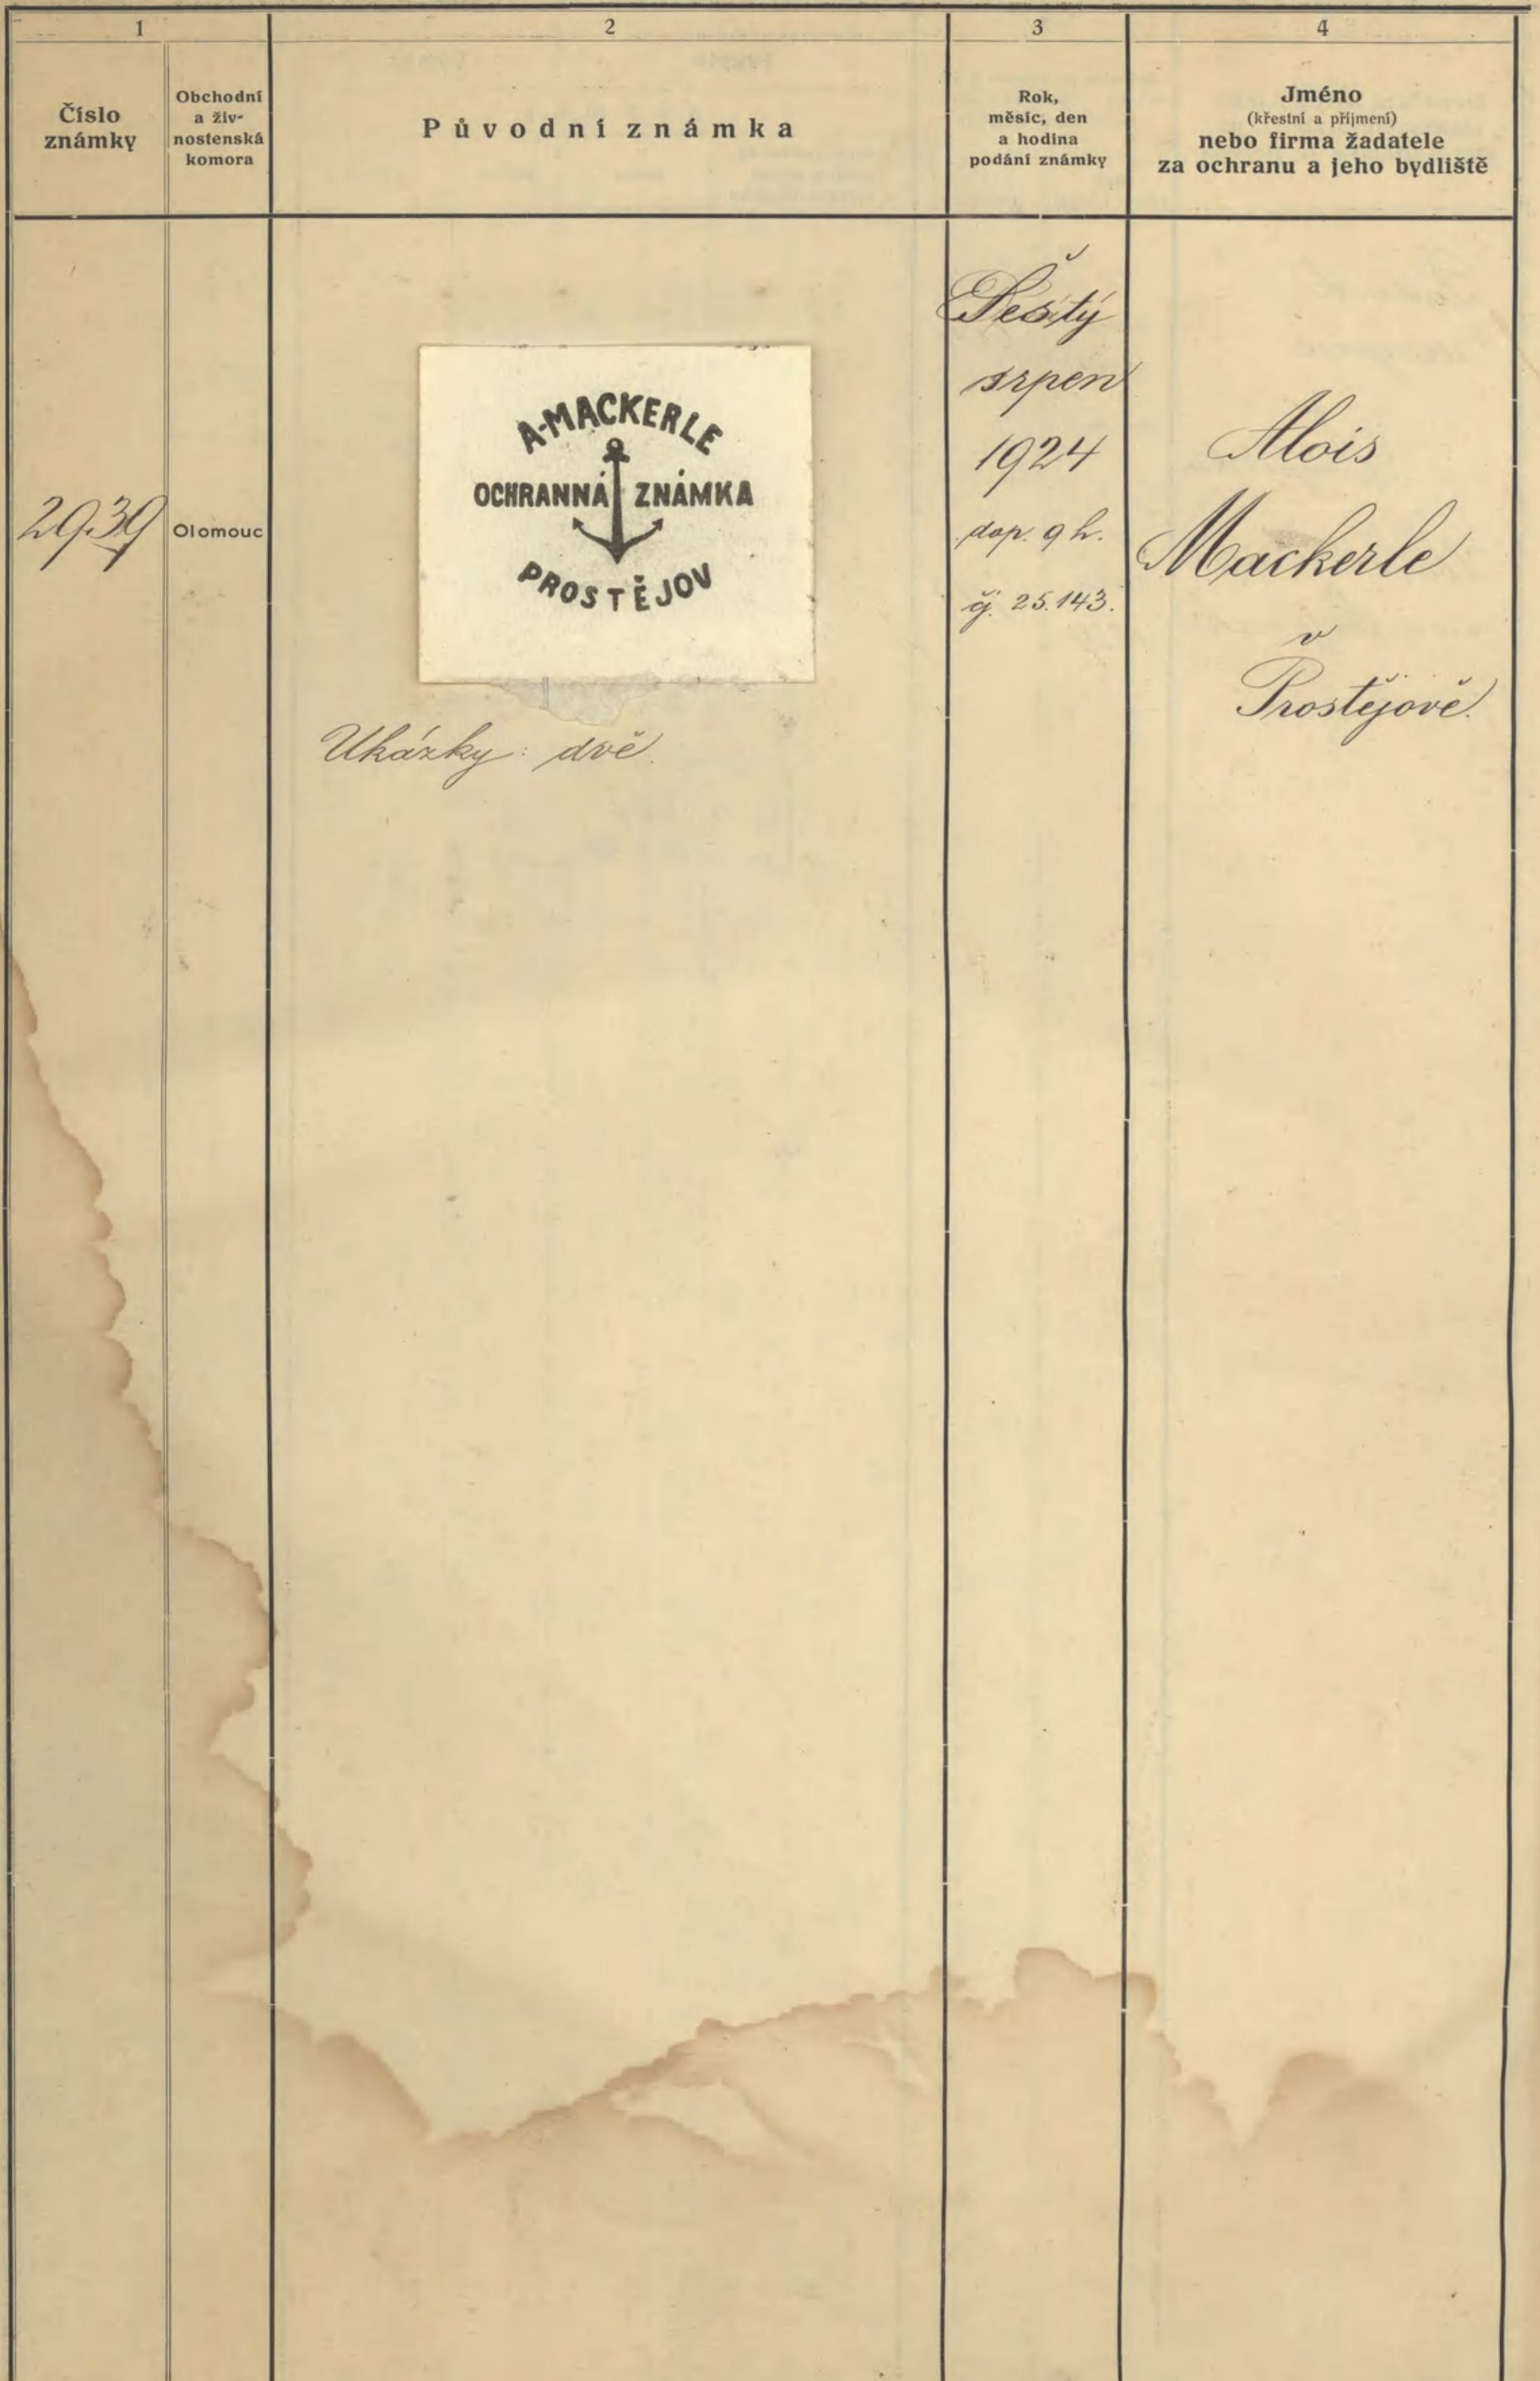 1
2
3
4
Číslo
známky
Obchodní
a živ-
nostenská
komora
Původní známka
Rok,
měsíc, den
a hodina
podání známky
Jméno
(křestní a příjmení)
nebo firma žadatele
za ochranu a jeho bydliště
2939
Olomouc
A·MACKERLE
OCHRANNÁ ZNÁMKA
PROSTĚJOV
Ukázky: dvě.
Šestý
srpen
1924
dop. 9 h.
čj. 25.143.
Alois
Mackerle
v
Prostějově.